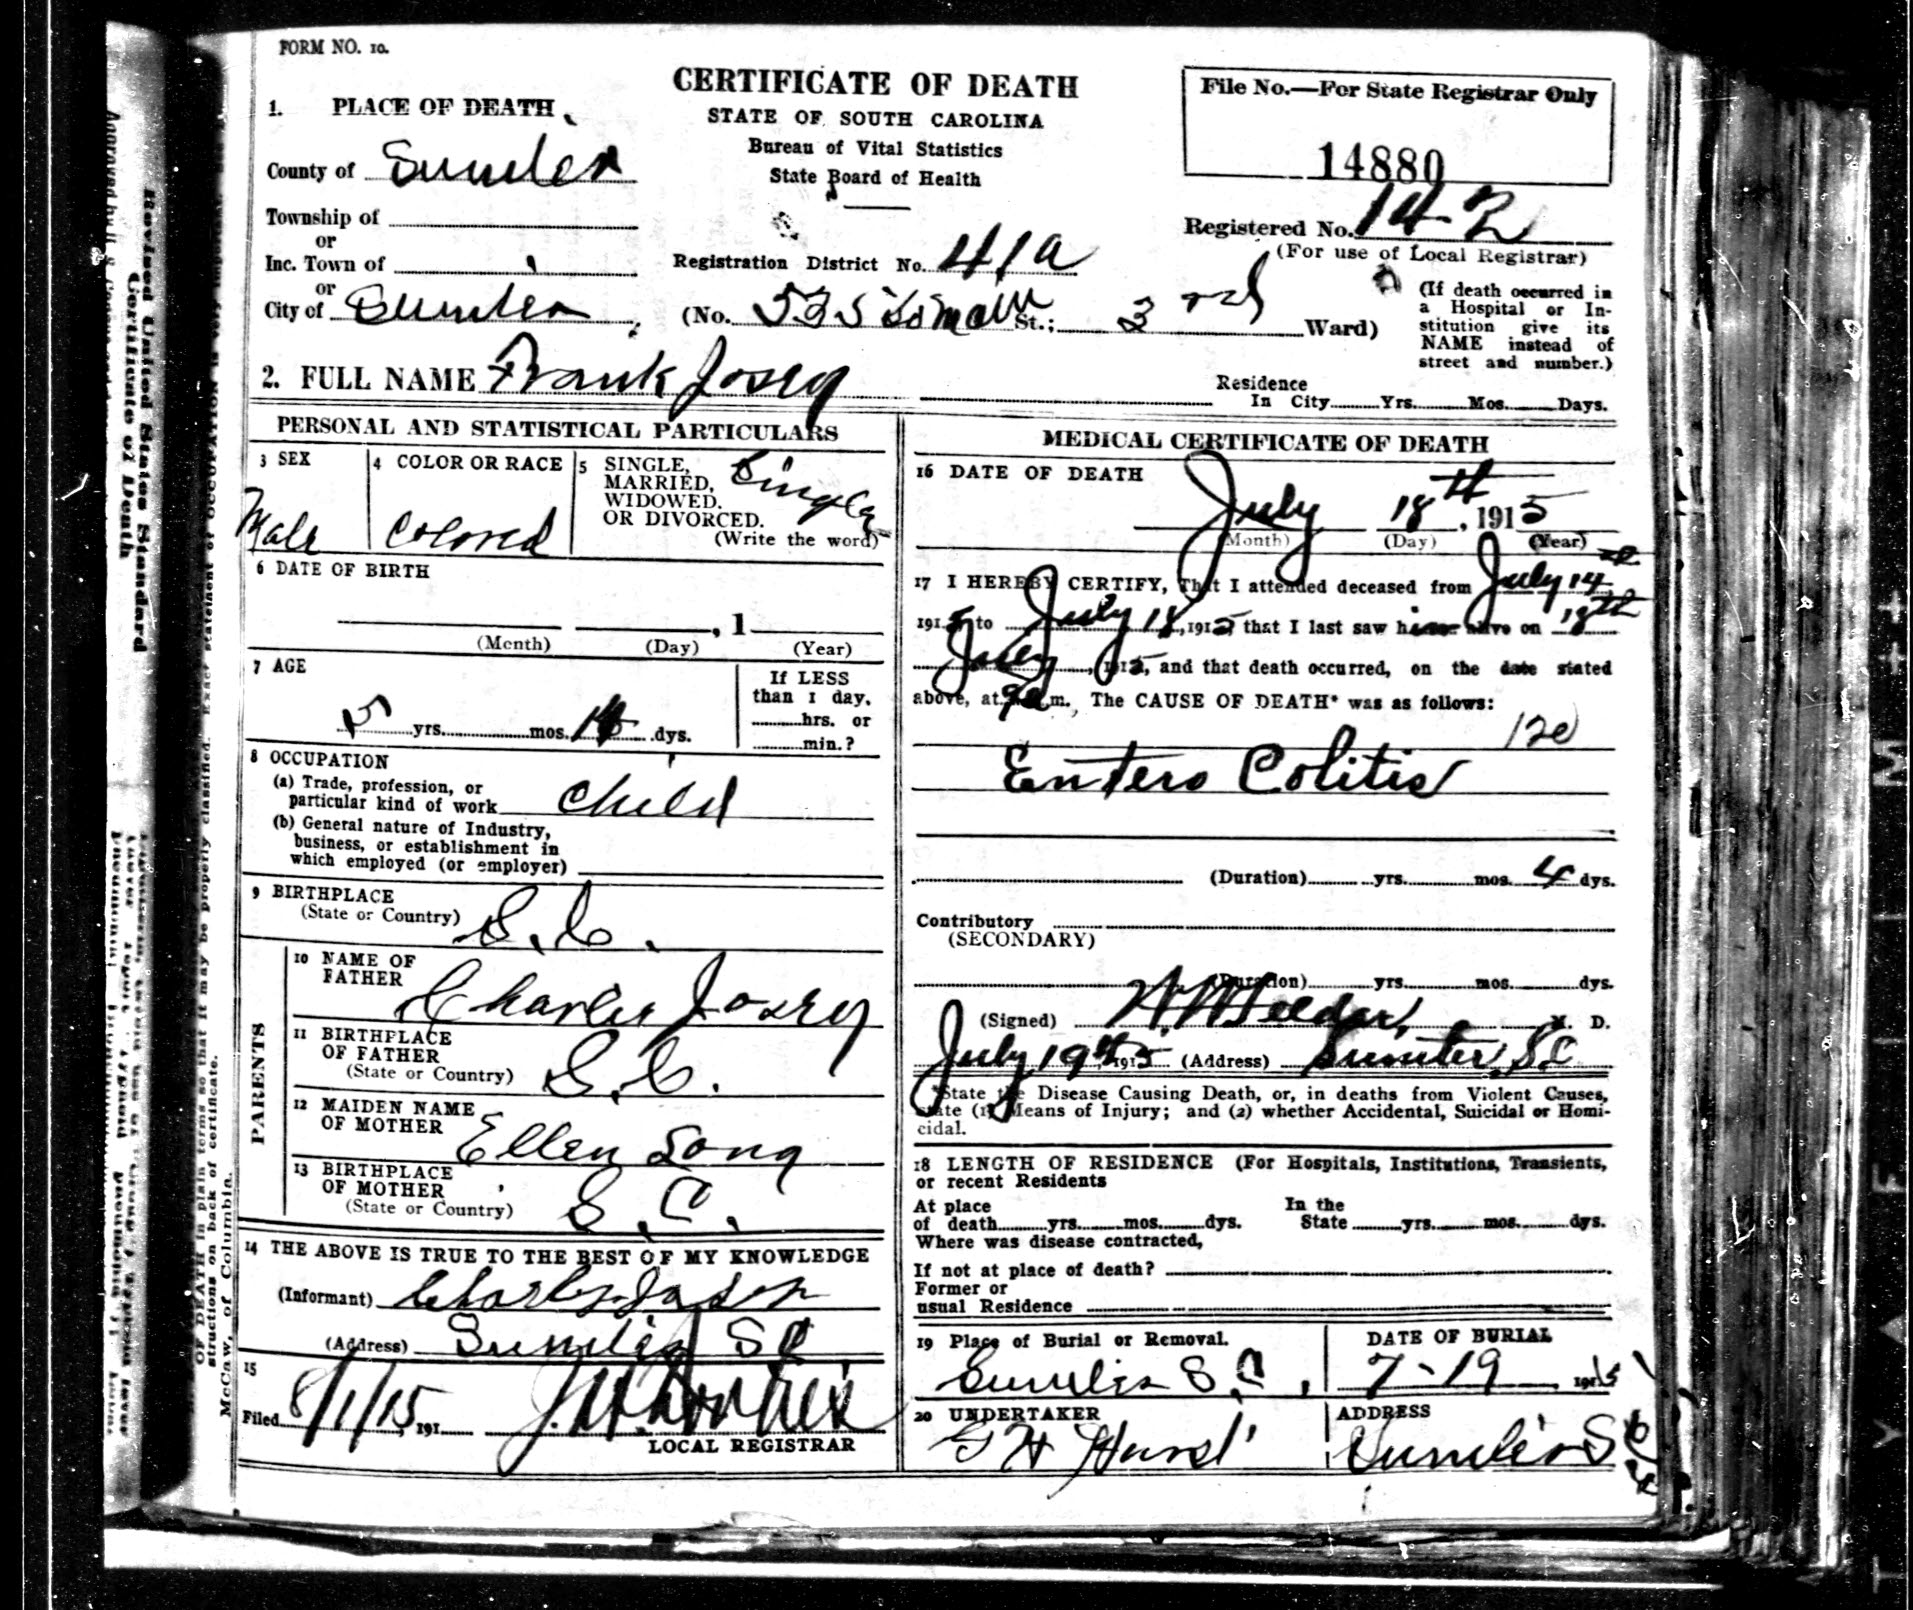 FORM NO. 10.
CERTIFICATE OF DEATH
STATE OF SOUTH CAROLINA
Bureau of Vital Statistics
State Board of Health
File No.—For State Registrar Only
14880
Registered No. 142
(For use of Local Registrar)
1. PLACE OF DEATH
County of Sumter
Township of
or
Inc. Town of
or
City of Sumter
Registration District No. 41a
(No. 535 St.; 3rd Ward)
(If death occurred in
a Hospital or In-
stitution give its
NAME instead of
street and number.)
2. FULL NAME Frank Josey
Residence
In City Yrs. Mos. Days.
PERSONAL AND STATISTICAL PARTICULARS
3 SEX
Male
4 COLOR OR RACE
Colored
5 SINGLE,
MARRIED,
WIDOWED.
OR DIVORCED.
(Write the word)
Single
6 DATE OF BIRTH
, 1
(Month) (Day) (Year)
7 AGE
5 yrs. mos. dys.
If LESS
than 1 day,
hrs. or
min.?
8 OCCUPATION
(a) Trade, profession, or
particular kind of work child
(b) General nature of Industry,
business, or establishment in
which employed (or employer)
9 BIRTHPLACE
(State or Country) S.C.
PARENTS
10 NAME OF
FATHER Charlie Josey
11 BIRTHPLACE
OF FATHER
(State or Country) S.C.
12 MAIDEN NAME
OF MOTHER Ellen Long
13 BIRTHPLACE
OF MOTHER
(State or Country) S.C.
14 THE ABOVE IS TRUE TO THE BEST OF MY KNOWLEDGE
(Informant)
(Address) Sumter S C
15
Filed 8/1/15, 191
LOCAL REGISTRAR
MEDICAL CERTIFICATE OF DEATH
16 DATE OF DEATH
July 18th, 1915
(Month) (Day) (Year)
17 I HEREBY CERTIFY, That I attended deceased from July 14
1915 to July 18, 1915, that I last saw him alive on 18th
July, 1915, and that death occurred, on the date stated
above, at 9 a m., The CAUSE OF DEATH* was as follows:
120
Entero Colitis
(Duration) yrs. mos. 4 dys.
Contributory
(SECONDARY)
(Duration) yrs. mos. dys.
(Signed) M. D.
July 19th 1915 (Address) Sumter, S.C
*State the Disease Causing Death, or, in deaths from Violent Causes,
state (1) Means of Injury; and (2) whether Accidental, Suicidal or Homi-
cidal.
18 LENGTH OF RESIDENCE (For Hospitals, Institutions, Transients,
or recent Residents
At place
of death yrs. mos. dys.
In the
State yrs. mos. dys.
Where was disease contracted,
If not at place of death?
Former or
usual Residence
19 Place of Burial or Removal.
Sumter S.C.
DATE OF BURIAL
7-19 1915
20 UNDERTAKER
G H Hurst
ADDRESS
Sumter S C
Revised United States Standard
Certificate of Death
OF DEATH in plain terms so that it may be properly classified. Exact statement of OCCUPATION is very important.
structions on back of certificate.
McCaw, of Columbia.